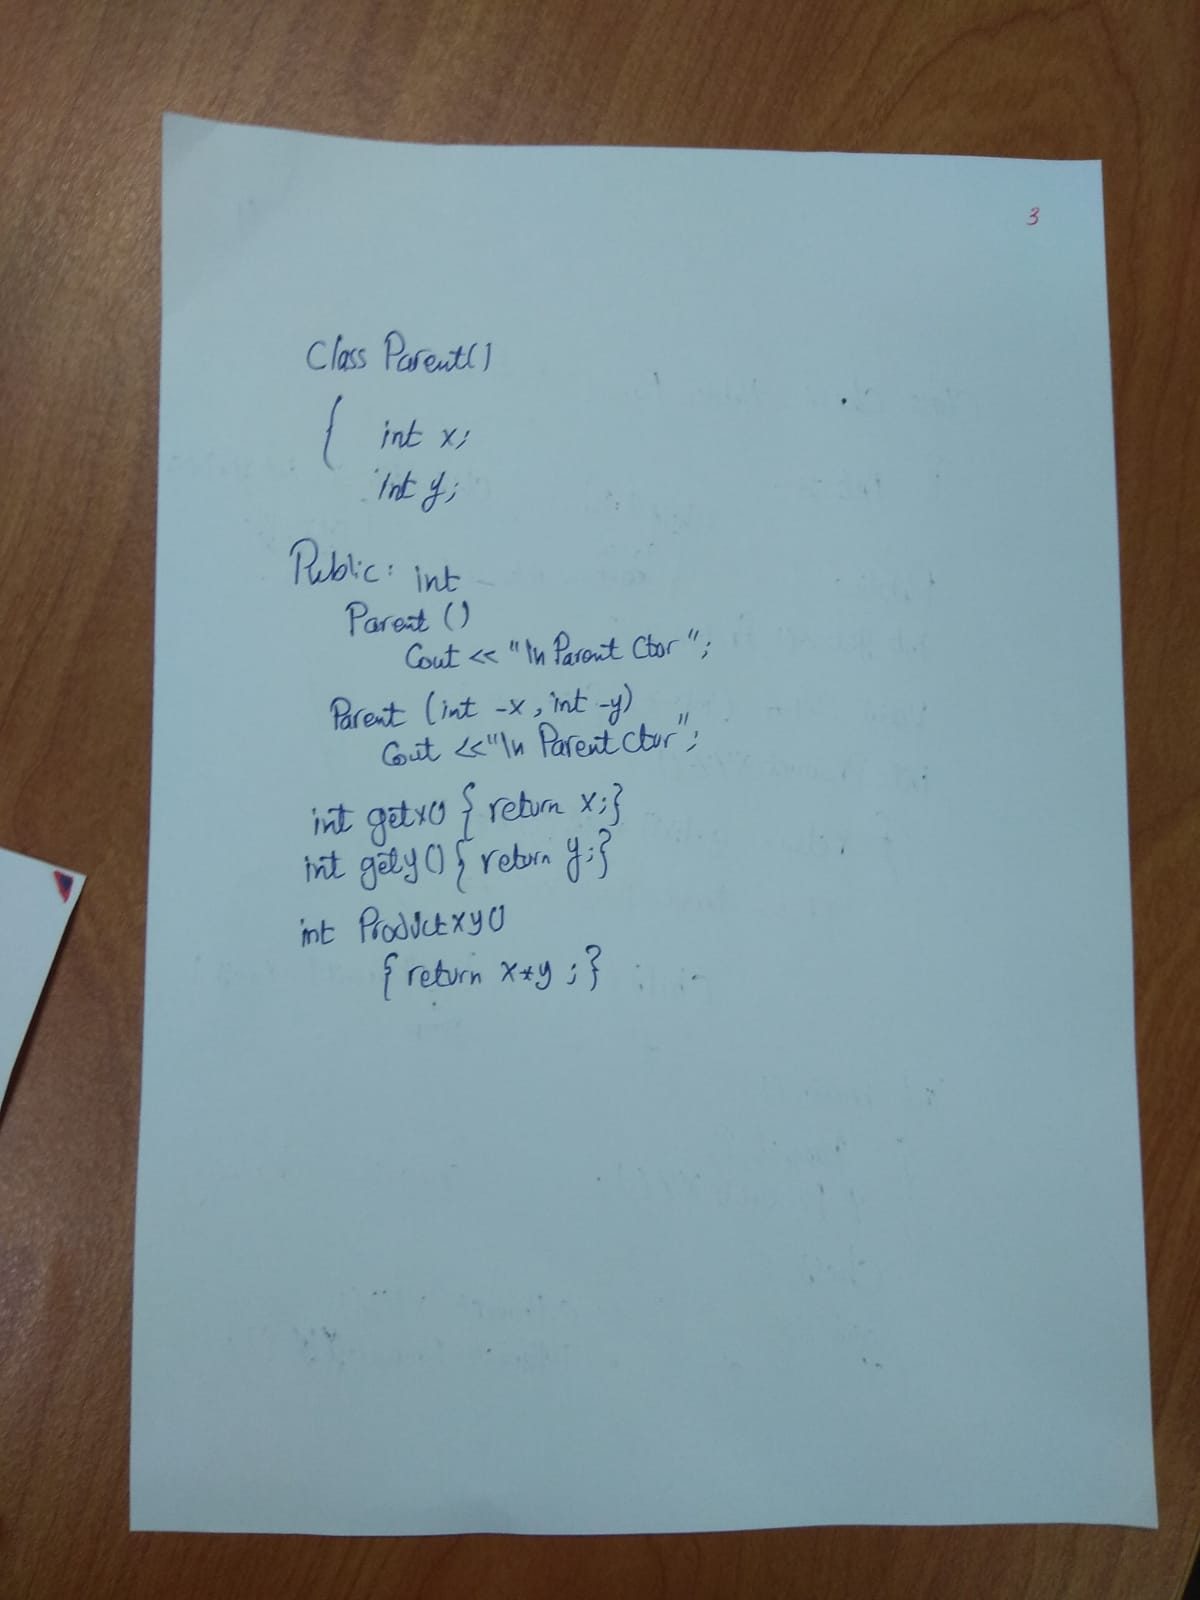 3
Class Parent()
{ int x;
int y;
Public: int
Parent ()
Cout << "In Parent Ctor";
Parent (int -x, int -y)
Cout <<"In Parent Ctor";
int getx() { return x;}
int gety() { return y;}
int Productxy()
{ return x*y ; }